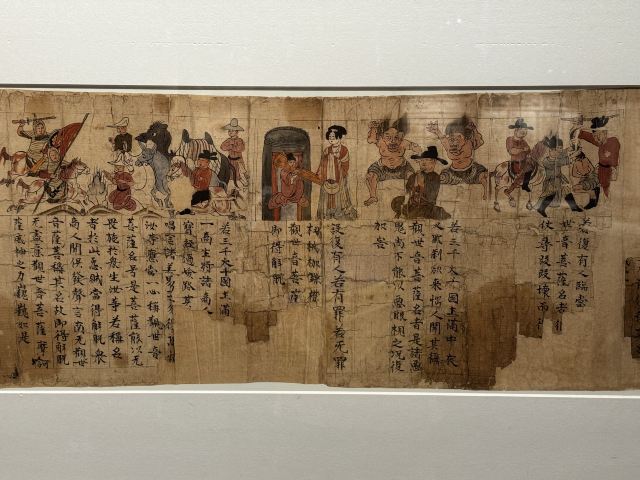 若復有人臨當
世音菩薩名者彼
仗尋段段壞而
若三千大千國土滿中夜
叉羅刹欲來惱人聞其稱
觀世音菩薩名者是諸惡
鬼尚不能以惡眼視之況復
加害
設復有人若有罪若无罪
杻械枷鎖檢
觀世音菩薩
即得解脫
若三千大千國土滿
一商主將諸商人
寶經過嶮路其
唱言諸善男子勿得恐怖
汝等應當一心稱觀世音
菩薩名号是菩薩能以无
畏施於衆生汝等若稱名
者於此怨賊當得解脫衆
商人聞俱發聲言南无觀世
音菩薩稱其名故即得解脫
无盡意觀世音菩薩摩訶
薩威神之力巍巍如是